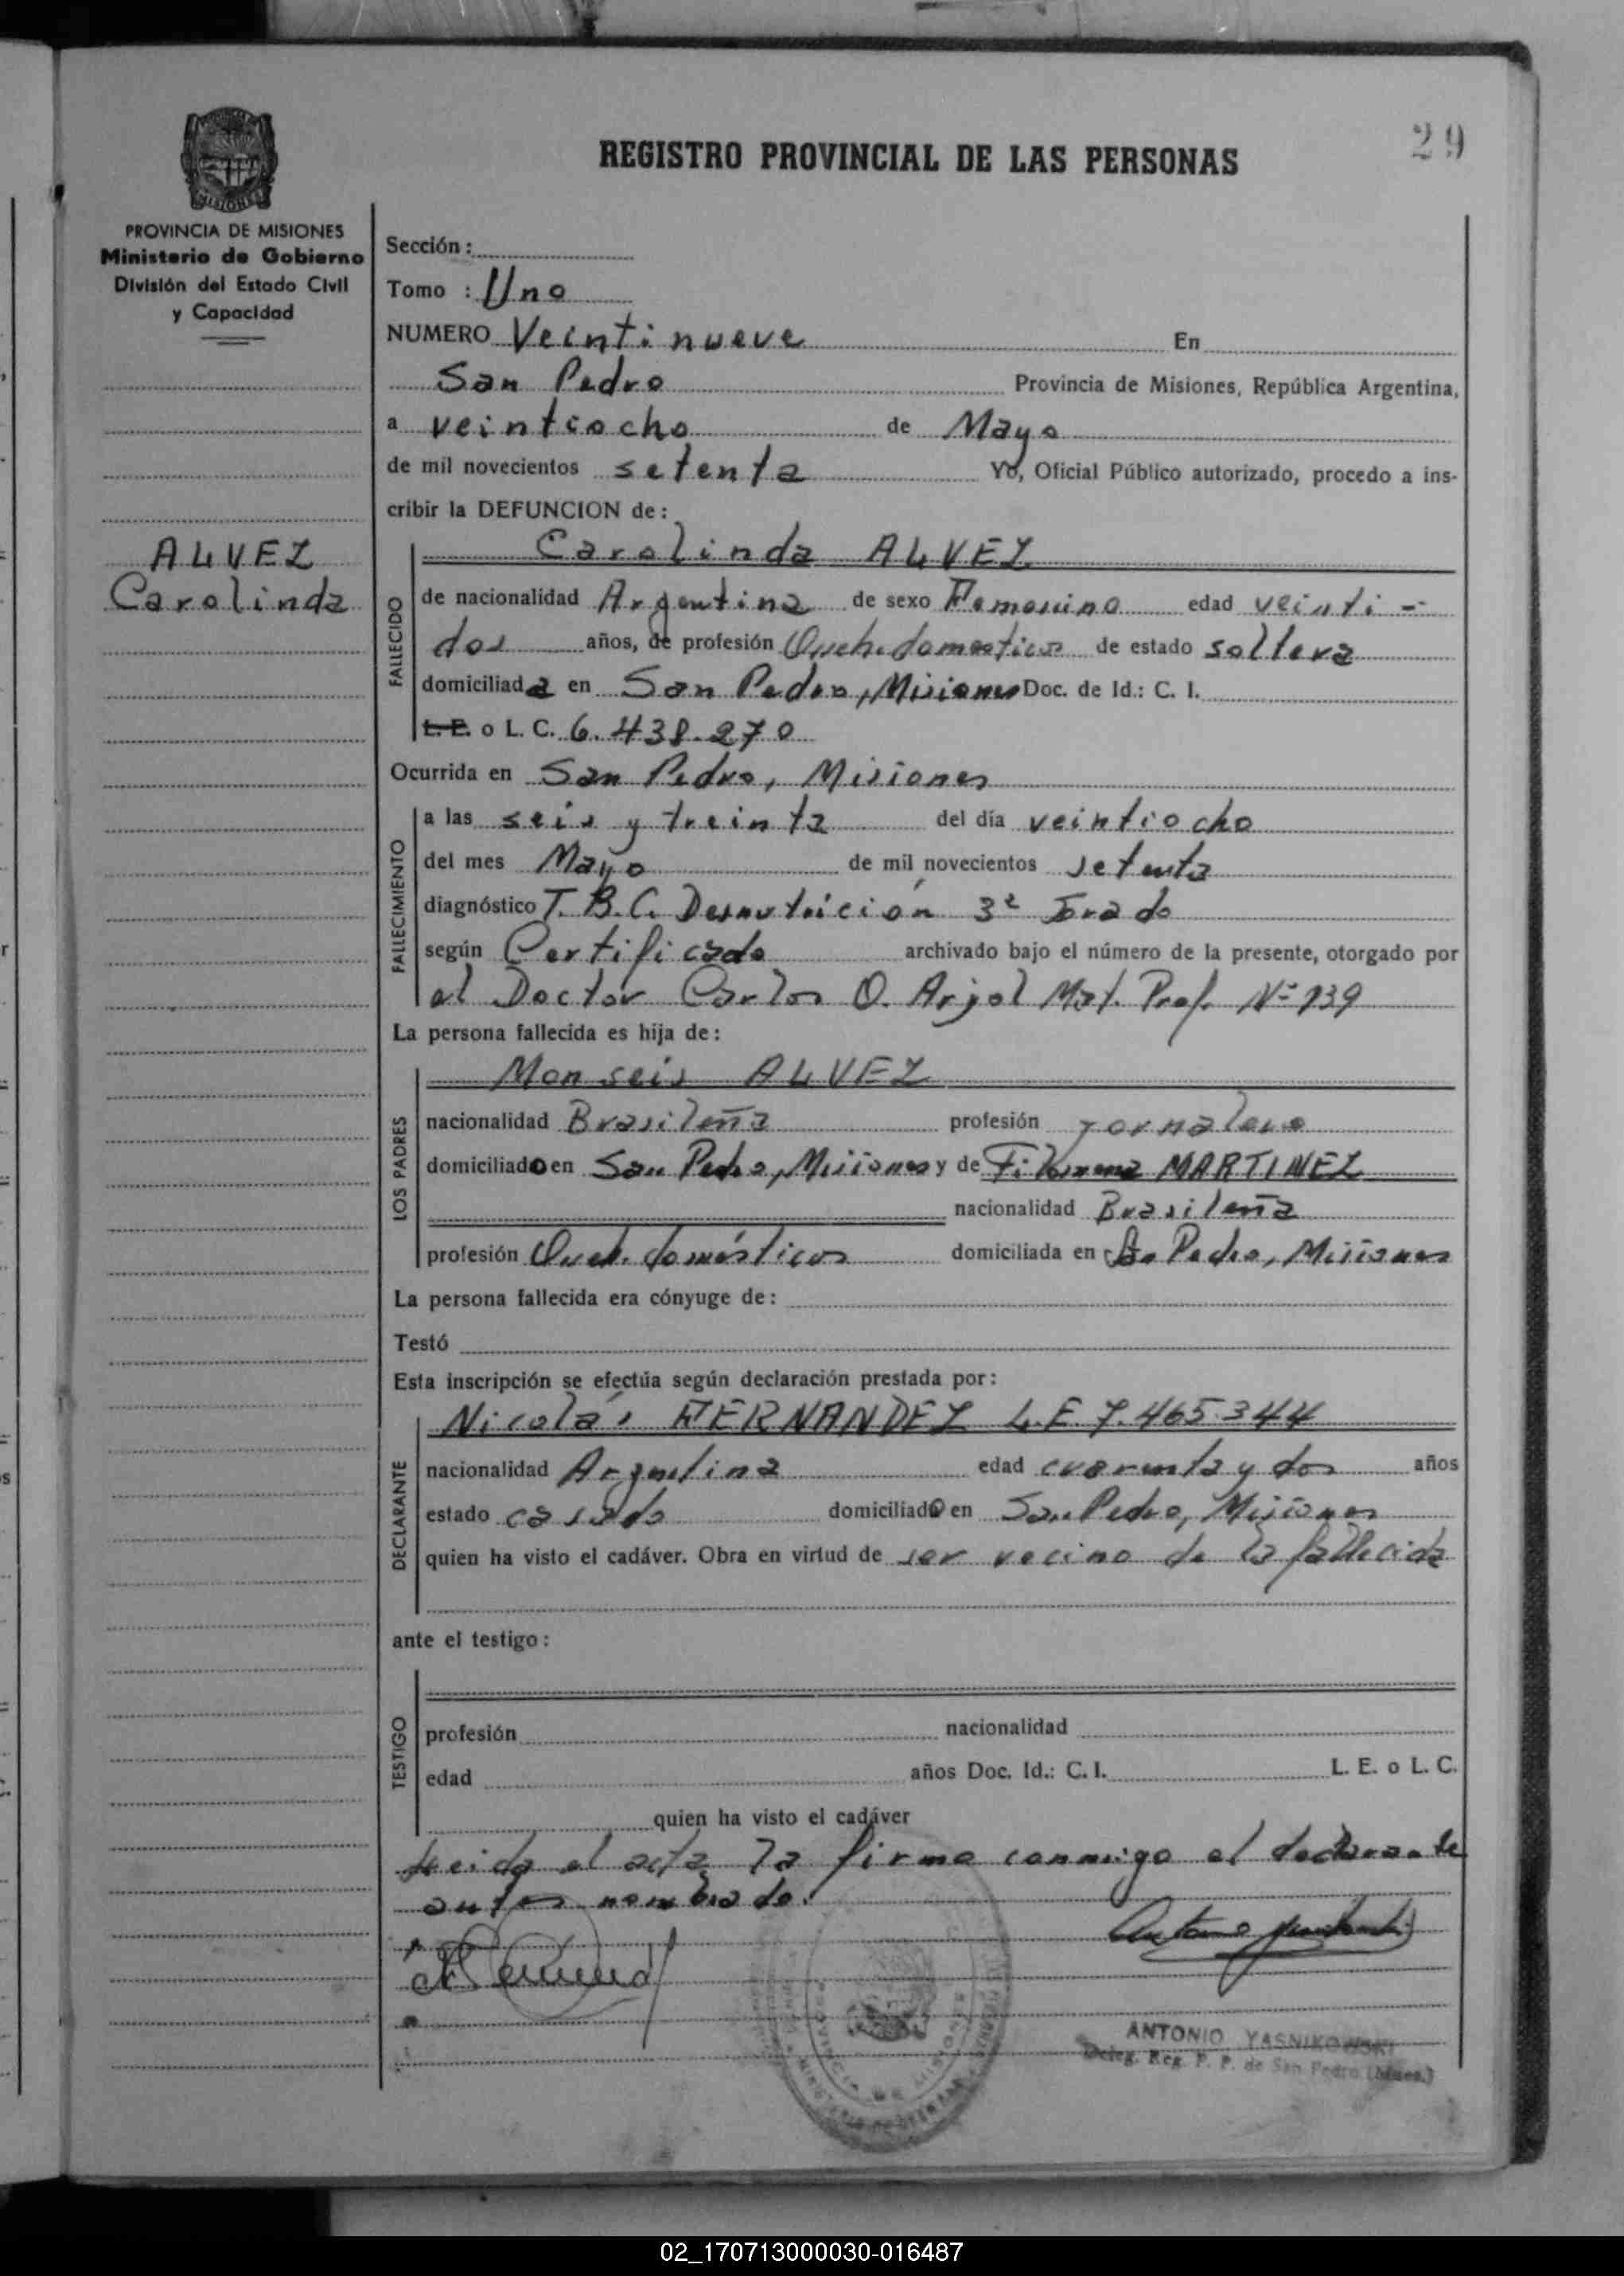 29
REGISTRO PROVINCIAL DE LAS PERSONAS
PROVINCIA DE MISIONES
Ministerio de Gobierno
División del Estado Civil
y Capacidad
ALVEZ
Carolinda
Sección:
Tomo : Uno
NUMERO Veintinueve En
San Pedro Provincia de Misiones, República Argentina,
a veintiocho de Mayo
de mil novecientos setenta Yo, Oficial Público autorizado, procedo a ins-
cribir la DEFUNCION de:
Carolinda ALVEZ
FALLECIDO
de nacionalidad Argentina de sexo Femenino edad veinti-
dos años, de profesión Queh. domesticos de estado soltera
domiciliada en San Pedro, Misiones Doc. de Id.: C. I.
L.E. o L. C. 6.438.270
Ocurrida en San Pedro, Misiones
FALLECIMIENTO
a las seis y treinta del día veintiocho
del mes Mayo de mil novecientos setenta
diagnóstico T.B.C. Desnutrición 3º Grado
según Certificado archivado bajo el número de la presente, otorgado por
el Doctor Carlos O. Arjol Mat. Prof. Nº 139
La persona fallecida es hija de:
Monseis ALVEZ
LOS PADRES
nacionalidad Brasileña profesión Jornalero
domiciliado en San Pedro, Misiones y de Filomena MARTINEZ
nacionalidad Brasileña
profesión Queh. domésticos domiciliada en San Pedro, Misiones
La persona fallecida era cónyuge de:
Testó
Esta inscripción se efectúa según declaración prestada por:
Nicolás FERNANDEZ L.E. 7.465.344
DECLARANTE
nacionalidad Argentina edad cuarenta y dos años
estado casado domiciliado en San Pedro, Misiones
quien ha visto el cadáver. Obra en virtud de ser vecino de la fallecida
ante el testigo:
TESTIGO
profesión nacionalidad
edad años Doc. Id.: C. I. L. E. o L. C.
quien ha visto el cadáver
Leida el acta, la firma conmigo el declarante
antes nombrado.
ANTONIO YASNIKOWSKI
Deleg. Reg. P. P. de San Pedro (Mnes.)
02_170713000030-016487